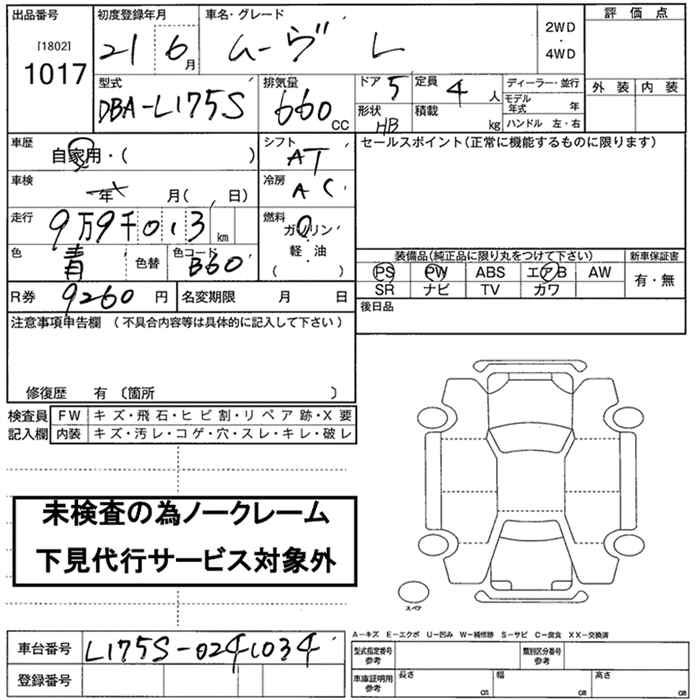 出品番号 初度登録年月 車名・グレード 2WD ・ 4WD 評価点
[1802]
1017 21 6月 ムーヴ L
外装 内装
型式 排気量 ドア 5 定員 4人 ディーラー・並行
DBA-L175S 660 CC 形状 HB 積載 kg モデル年式 年
ハンドル 左・右
車歴 自家用・( ) シフト AT セールスポイント(正常に機能するものに限ります)
車検 年 月( 、 日) 冷房 AC
走行 9万9千013 km 燃料 ガソリン
軽・油
( )
色 青 色替 色コード B60
装備品(純正品に限り丸をつけて下さい) 新車保証書
PS PW ABS エアB AW 有・無
SR ナビ TV カワ
R券 9260円 名変期限 月 日 後日品
注意事項申告欄 (不具合内容等は具体的に記入して下さい)
修復歴 有 〔箇所 〕
検査員 FW キズ・飛石・ヒビ割・リペア跡・X要
記入欄 内装 キズ・汚レ・コゲ・穴・スレ・キレ・破レ
未検査の為ノークレーム
下見代行サービス対象外
スペア
A-キズ E-エクボ U-凹み W-補修跡 S-サビ C-腐食 XX-交換済
車台番号 L175S-0241034 型式指定番号 参考 類別区分番号 参考
登録番号 車庫証明用 参考 長さ cm 幅 cm 高さ cm